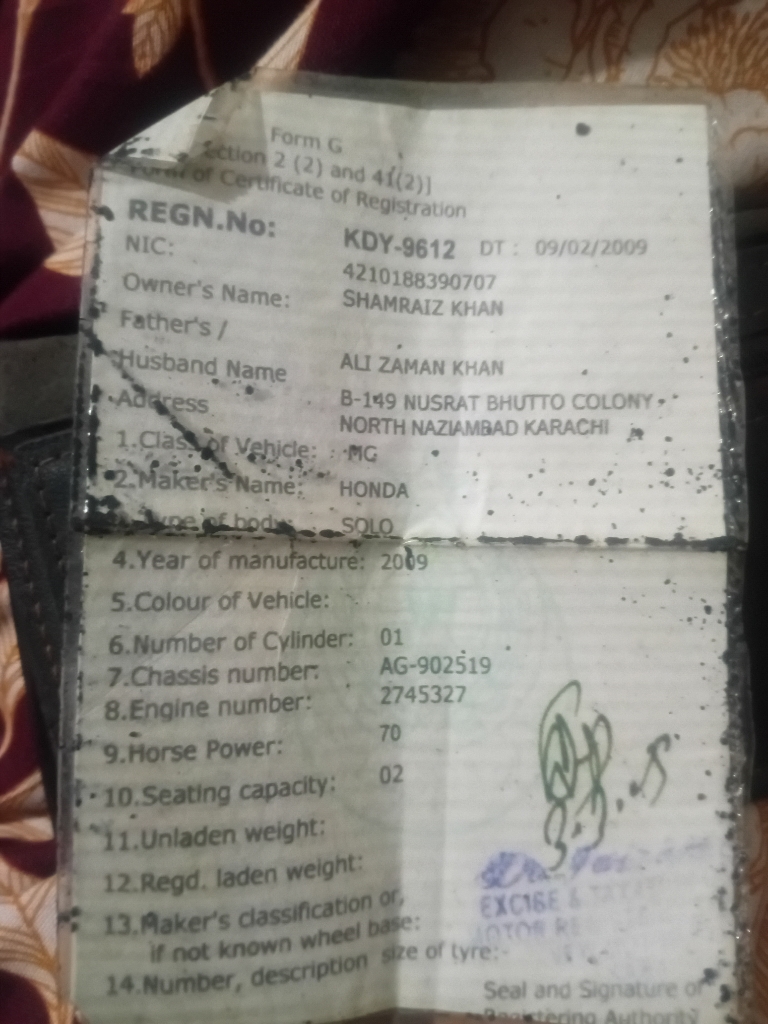 Form G
ection 2 (2) and 41(2)]
Form of Certificate of Registration
REGN.No: KDY-9612 DT : 09/02/2009
NIC: 4210188390707
Owner's Name: SHAMRAIZ KHAN
Father's /
Husband Name ALI ZAMAN KHAN
Address B-149 NUSRAT BHUTTO COLONY
NORTH NAZIAMBAD KARACHI
1.Class of Vehicle: MG
2.Maker's Name: HONDA
Type of body SOLO
4.Year of manufacture: 2009
5.Colour of Vehicle:
6.Number of Cylinder: 01
7.Chassis number: AG-902519
8.Engine number: 2745327
9.Horse Power: 70
10.Seating capacity: 02
11.Unladen weight:
12.Regd. laden weight:
13.Maker's classification or,
if not known wheel base:
14.Number, description size of tyre:-
EXCISE &
MOTOR RE
Seal and Signature of
Registering Authority